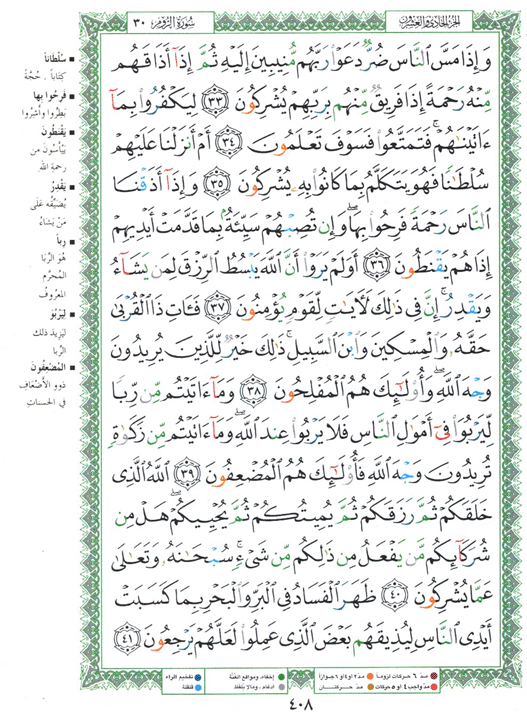 الجزء الحادي والعشرون
سورة الروم ٣٠
وَإِذَا مَسَّ ٱلنَّاسَ ضُرٌّ دَعَوْا۟ رَبَّهُم مُّنِيبِينَ إِلَيْهِ ثُمَّ إِذَآ أَذَاقَهُم
مِّنْهُ رَحْمَةً إِذَا فَرِيقٌ مِّنْهُم بِرَبِّهِمْ يُشْرِكُونَ ٣٣ لِيَكْفُرُوا۟ بِمَآ
ءَاتَيْنَـٰهُمْ ۚ فَتَمَتَّعُوا۟ فَسَوْفَ تَعْلَمُونَ ٣٤ أَمْ أَنزَلْنَا عَلَيْهِمْ
سُلْطَـٰنًا فَهُوَ يَتَكَلَّمُ بِمَا كَانُوا۟ بِهِۦ يُشْرِكُونَ ٣٥ وَإِذَآ أَذَقْنَا
ٱلنَّاسَ رَحْمَةً فَرِحُوا۟ بِهَا ۖ وَإِن تُصِبْهُمْ سَيِّئَةٌۢ بِمَا قَدَّمَتْ أَيْدِيهِمْ
إِذَا هُمْ يَقْنَطُونَ ٣٦ أَوَلَمْ يَرَوْا۟ أَنَّ ٱللَّهَ يَبْسُطُ ٱلرِّزْقَ لِمَن يَشَآءُ
وَيَقْدِرُ ۚ إِنَّ فِى ذَٰلِكَ لَـَٔايَـٰتٍ لِّقَوْمٍ يُؤْمِنُونَ ٣٧ فَـَٔاتِ ذَا ٱلْقُرْبَىٰ
حَقَّهُۥ وَٱلْمِسْكِينَ وَٱبْنَ ٱلسَّبِيلِ ۚ ذَٰلِكَ خَيْرٌ لِّلَّذِينَ يُرِيدُونَ
وَجْهَ ٱللَّهِ ۖ وَأُو۟لَـٰٓئِكَ هُمُ ٱلْمُفْلِحُونَ ٣٨ وَمَآ ءَاتَيْتُم مِّن رِّبًا
لِّيَرْبُوَا۟ فِىٓ أَمْوَٰلِ ٱلنَّاسِ فَلَا يَرْبُوا۟ عِندَ ٱللَّهِ ۖ وَمَآ ءَاتَيْتُم مِّن زَكَوٰةٍ
تُرِيدُونَ وَجْهَ ٱللَّهِ فَأُو۟لَـٰٓئِكَ هُمُ ٱلْمُضْعِفُونَ ٣٩ ٱللَّهُ ٱلَّذِى
خَلَقَكُمْ ثُمَّ رَزَقَكُمْ ثُمَّ يُمِيتُكُمْ ثُمَّ يُحْيِيكُمْ ۖ هَلْ مِن
شُرَكَآئِكُم مَّن يَفْعَلُ مِن ذَٰلِكُم مِّن شَىْءٍ ۚ سُبْحَـٰنَهُۥ وَتَعَـٰلَىٰ
عَمَّا يُشْرِكُونَ ٤٠ ظَهَرَ ٱلْفَسَادُ فِى ٱلْبَرِّ وَٱلْبَحْرِ بِمَا كَسَبَتْ
أَيْدِى ٱلنَّاسِ لِيُذِيقَهُم بَعْضَ ٱلَّذِى عَمِلُوا۟ لَعَلَّهُمْ يَرْجِعُونَ ٤١
سُلْطَاناً
كِتَاباً . حُجَّةً
فرحُوا بها
بَطِرُوا وأشِرُوا
يَقْنَطُونَ
يَيْأسُونَ من
رحمةِ الله
يَقْدِرُ
يُضَيِّقُه عَلَى
مَنْ يَشَاءُ
رِباً
هُوَ الرِّبَا
المُحَرَّم
المعْرُوف
لِيَرْبُوَ
لِيَزِيدَ ذلك
الرِّبا
المُضْعِفُونَ
ذَوو الأَضْعَاف
في الحسناتِ
مدّ ٦ حركات لزوماً
مدّ ٢ أو ٤ أو ٦ جوازاً
إخفاء، ومواقع الغُنَّة
تفخيم الراء
مدّ واجب ٤ أو ٥ حركات
مدّ حركتان
إدغام، وما لا يُلفظ
قلقلة
٤٠٨